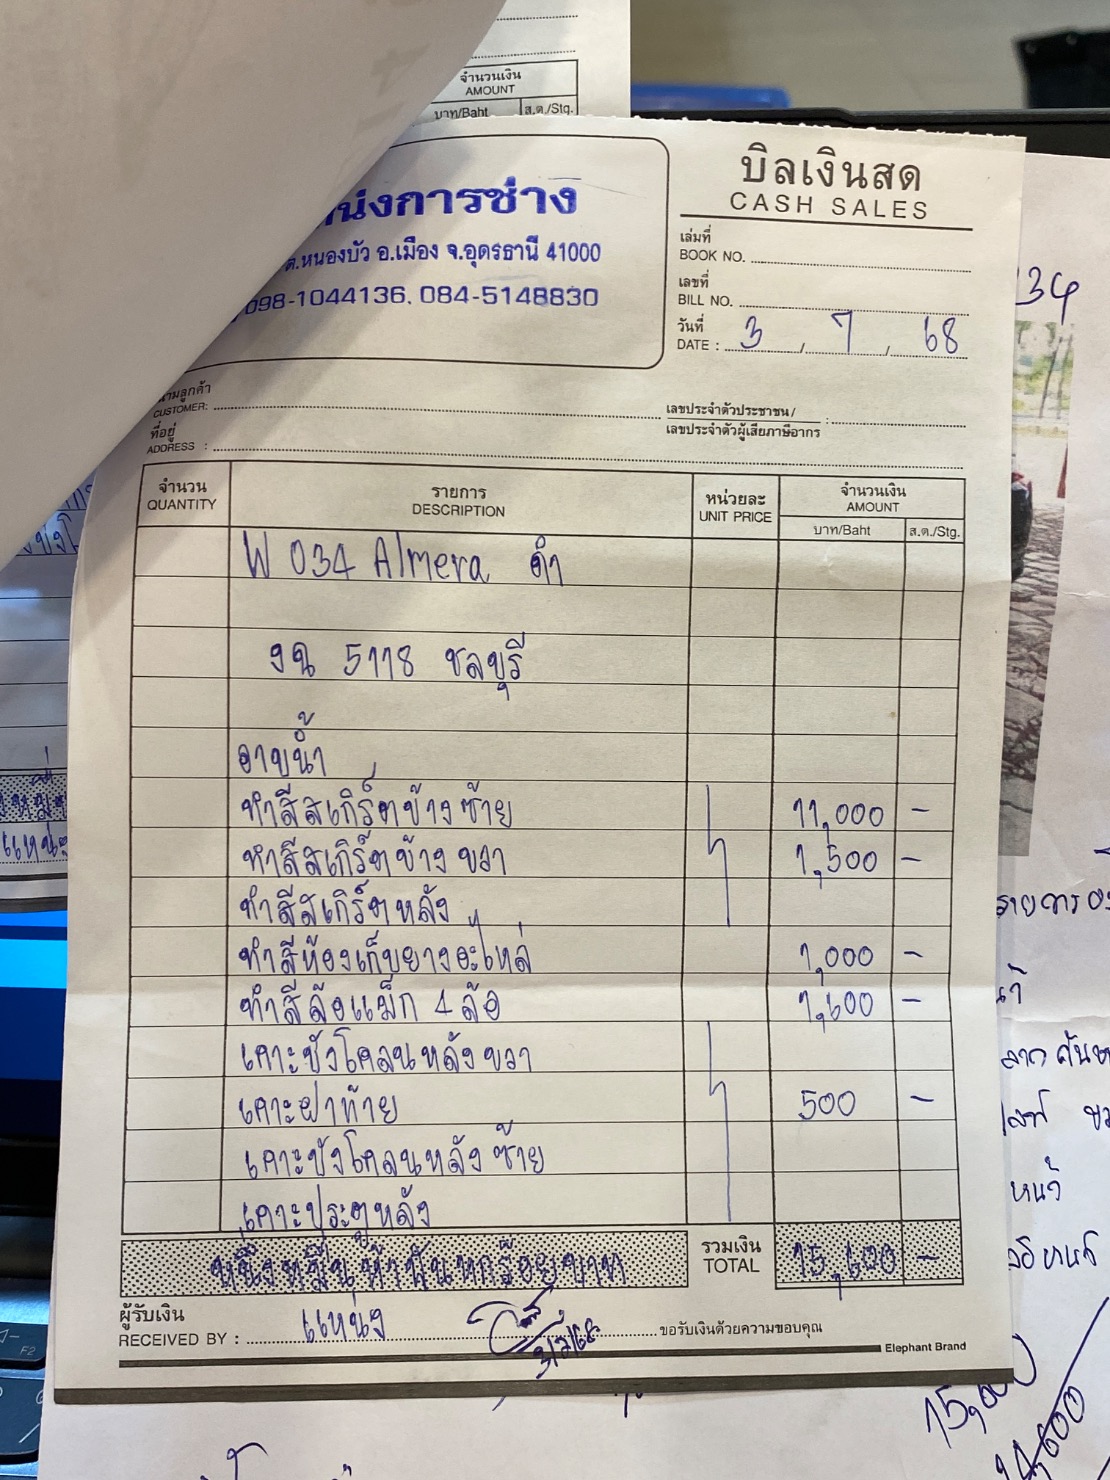 จำนวนเงิน
AMOUNT
บาท/Baht ส.ต./Stg.
หน่งการช่าง
ต.หนองบัว อ.เมือง จ.อุดรธานี 41000
098-1044136, 084-5148830
บิลเงินสด
CASH SALES
เล่มที่
BOOK NO.
เลขที่
BILL NO.
วันที่
DATE : 3 / 7 / 68
นามลูกค้า
CUSTOMER:
ที่อยู่
ADDRESS :
เลขประจำตัวประชาชน/
เลขประจำตัวผู้เสียภาษีอากร :
จำนวน รายการ หน่วยละ จำนวนเงิน
QUANTITY DESCRIPTION UNIT PRICE AMOUNT
บาท/Baht ส.ต./Stg.
W 034 Almera ดำ
งฉ 5118 ชลบุรี
อาบน้ำ
ทำสีสเกิร์ตข้างซ้าย 11,000 -
ทำสีสเกิร์ตข้างขวา 1,500 -
ทำสีสเกิร์ตหลัง
ทำสีห้องเก็บยางอะไหล่ 1,000 -
ทำสีล้อแม็ก 4 ล้อ 1,600 -
เคาะบังโคลนหลังขวา
เคาะฝาท้าย 500 -
เคาะบังโคลนหลังซ้าย
เคาะประตูหลัง
หนึ่งหมื่นห้าพันหกร้อยบาท รวมเงิน TOTAL 15,600 -
ผู้รับเงิน
RECEIVED BY : แหน่ง ขอรับเงินด้วยความขอบคุณ
Elephant Brand
15,600